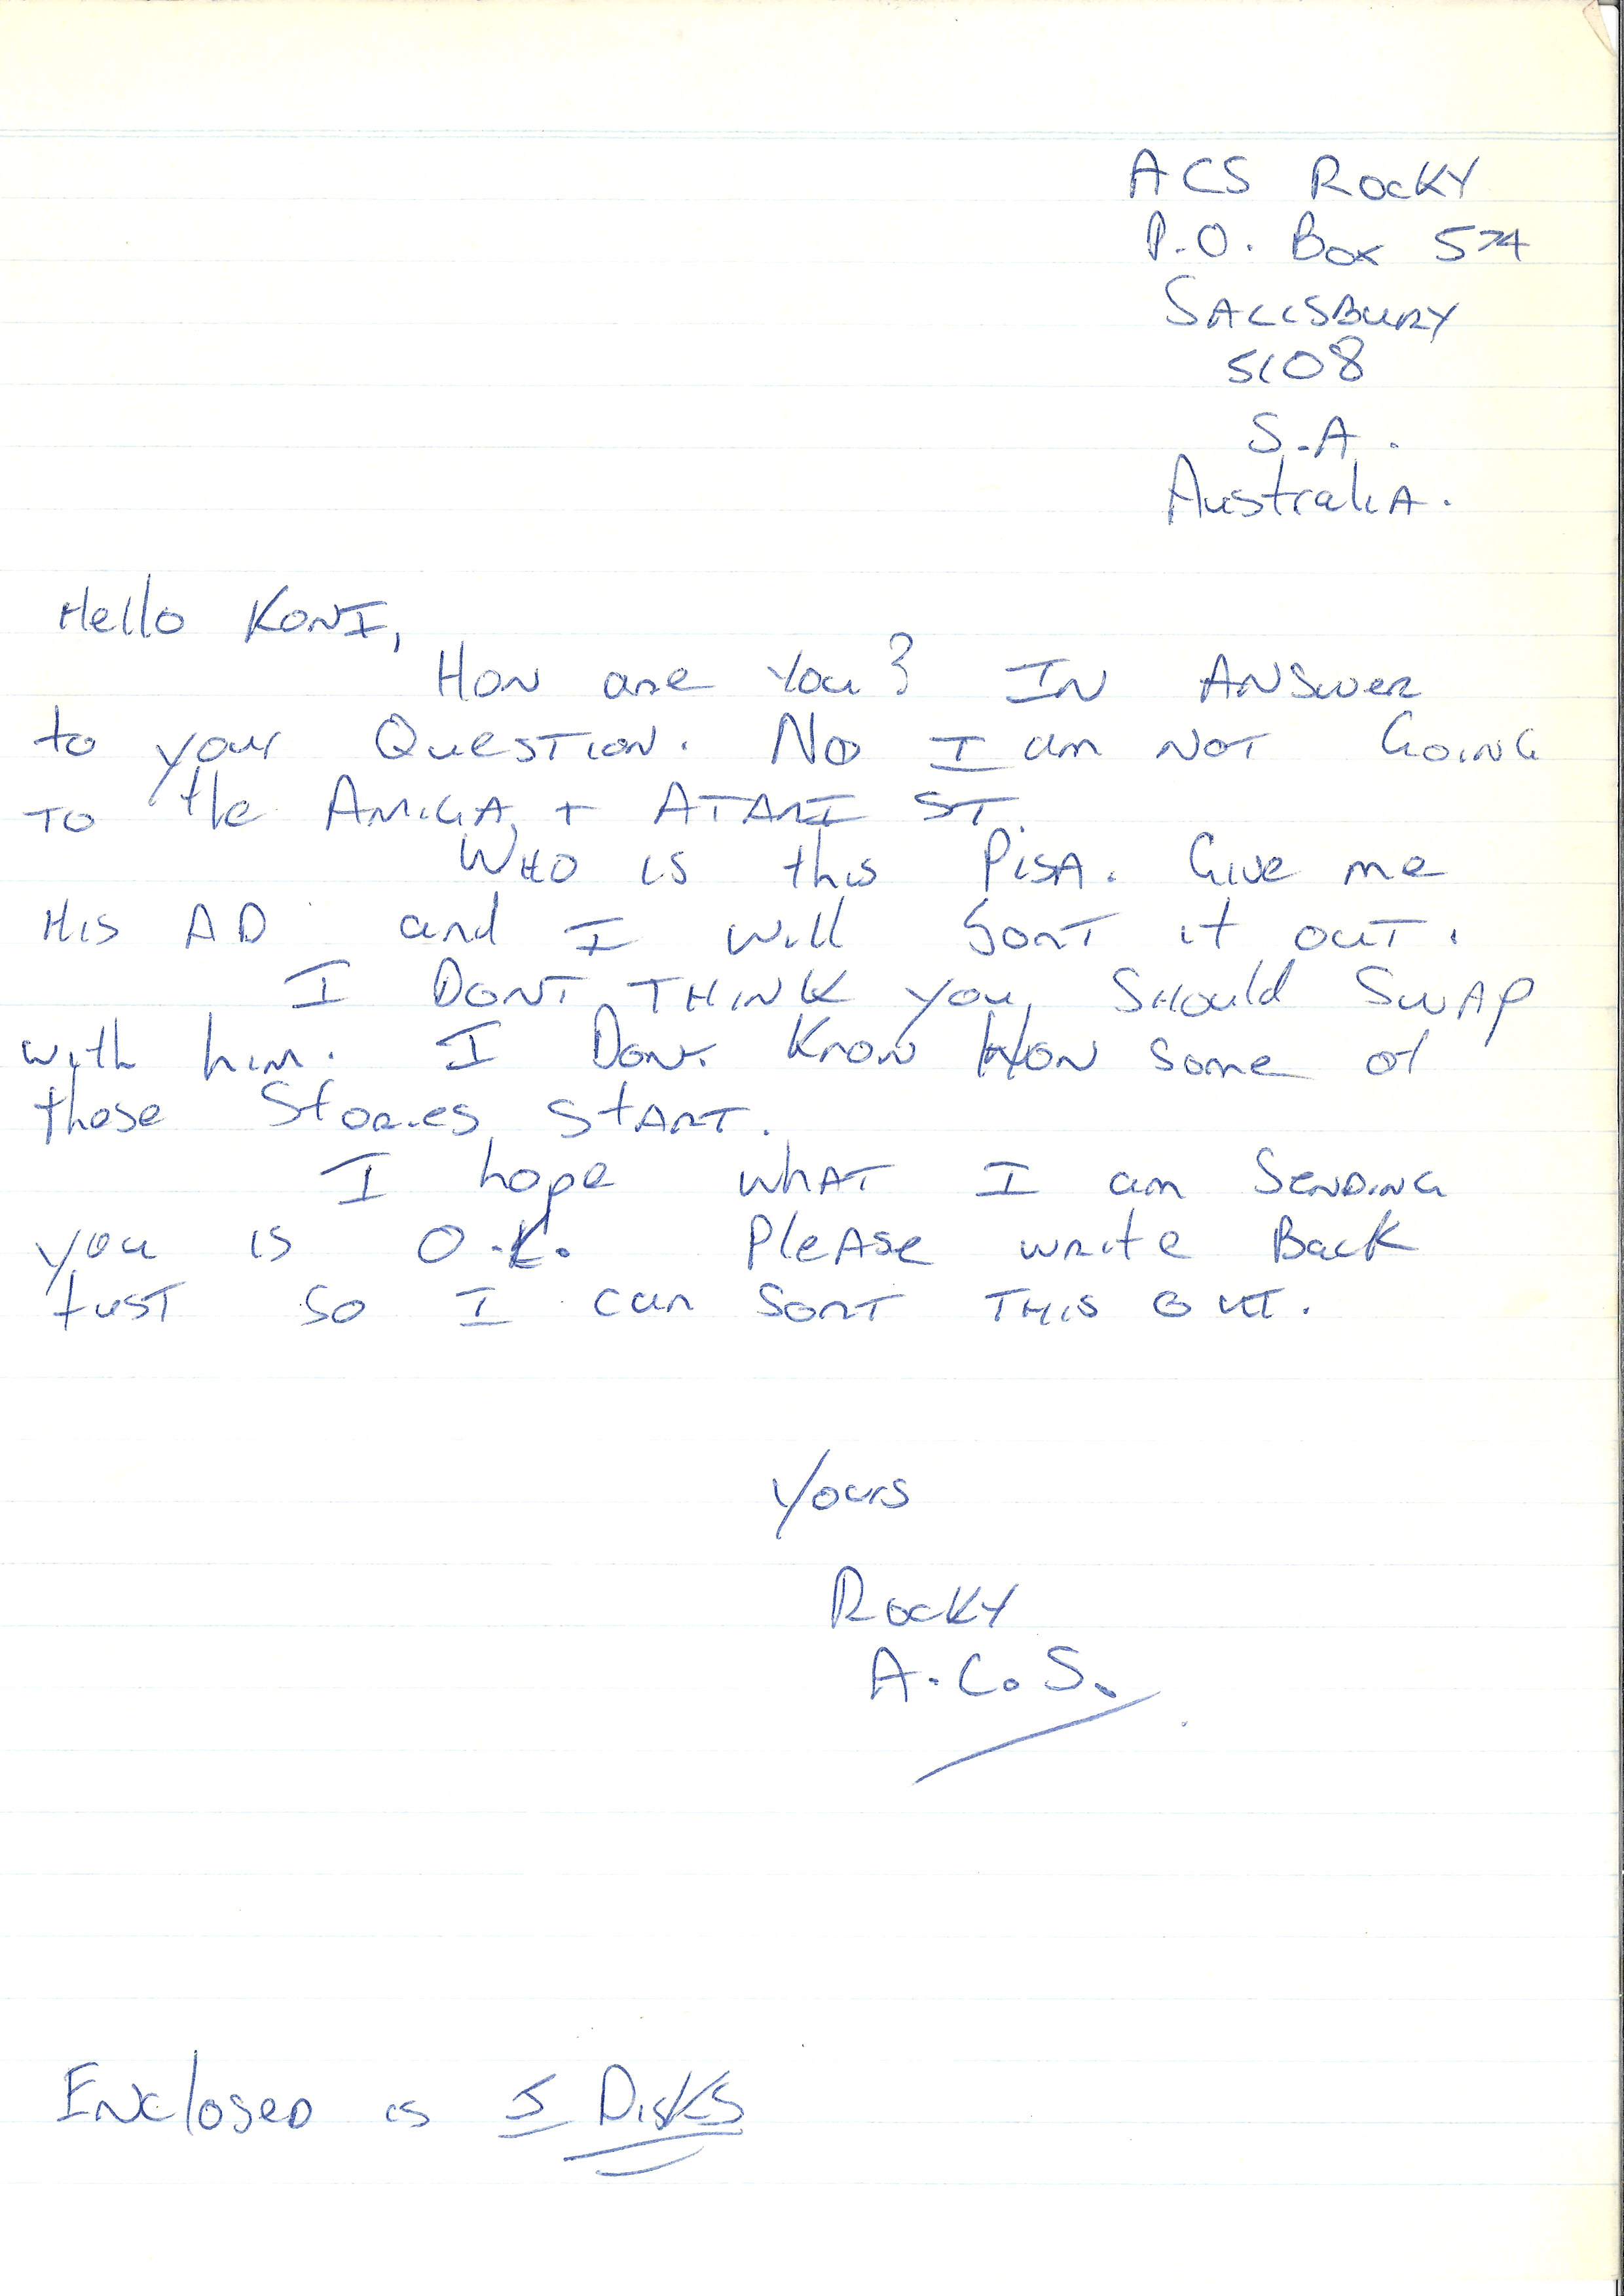 ACS Rocky
P.O. Box 574
SALISBURY
5108
S.A.
Australia.
Hello KONI,
How are you? IN ANSWER
to your Question. No I am NOT GOING
TO the AMIGA, + ATARI ST.
WHO is this PISA. Give me
His AD and I will SORT it OUT.
I DONT THINK you Should SWAP
with him. I Dont Know How some of
those Stories START.
I hope WHAT I am SENDING
you is O.K. PleAse write Back
just so I can SORT THIS OUT.
Yours
Rocky
A.C.S.
Enclosed is 5 Disks